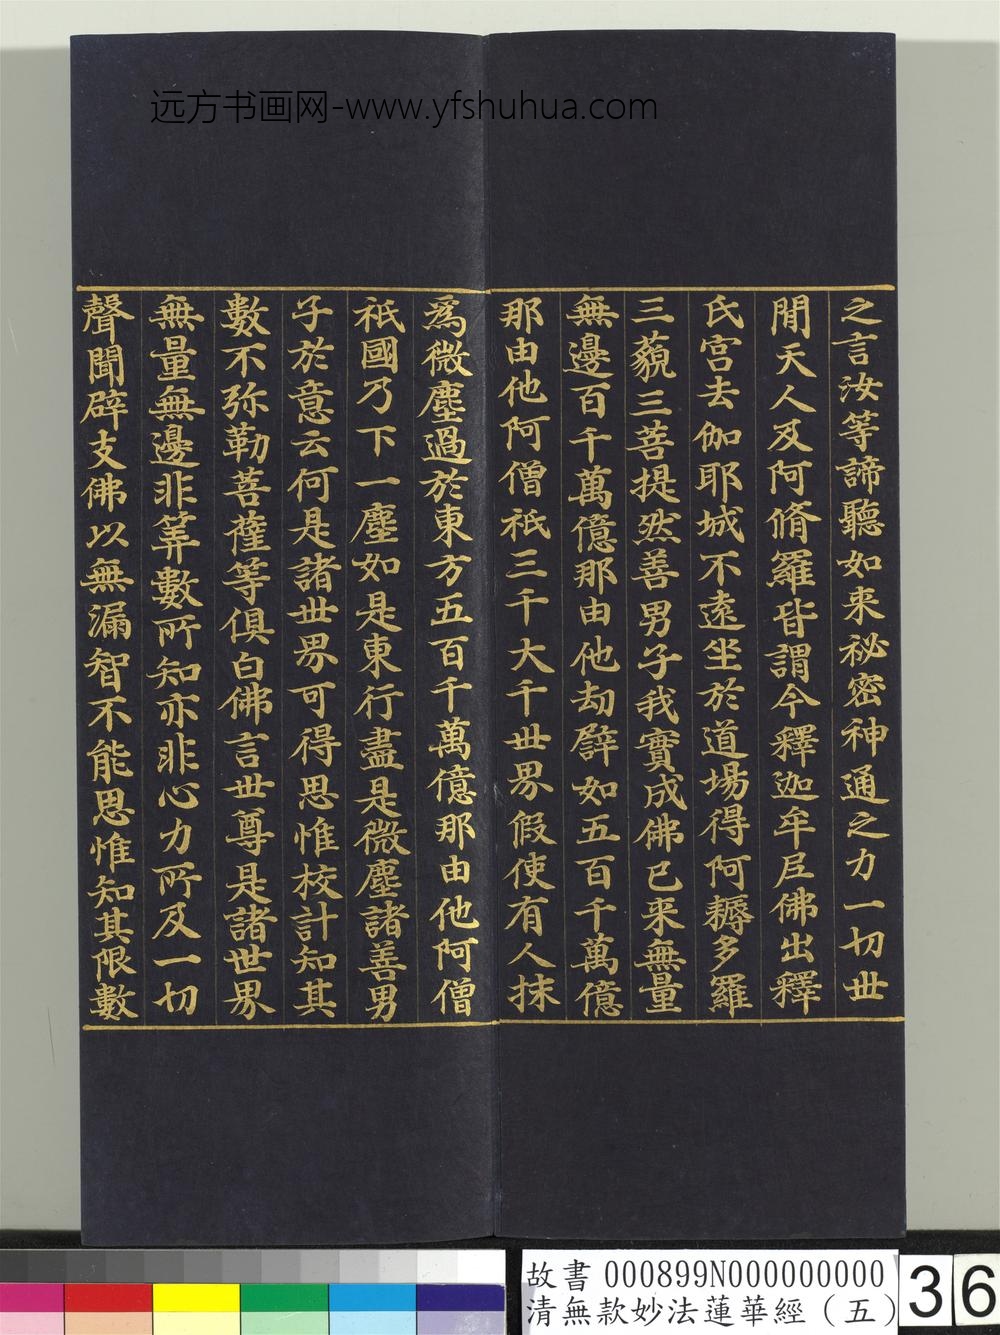 远方书画网-www.yfshuhua.com
之言汝等諦聽如来祕密神通之力一切世
間天人及阿脩羅皆謂今釋迦牟尼佛出釋
氏宮去伽耶城不遠坐於道場得阿耨多羅
三藐三菩提然善男子我實成佛已来無量
無邊百千萬億那由他劫譬如五百千萬億
那由他阿僧祇三千大千世界假使有人抹
為微塵過於東方五百千萬億那由他阿僧
祇國乃下一塵如是東行盡是微塵諸善男
子於意云何是諸世界可得思惟校計知其
數不弥勒菩薩等俱白佛言世尊是諸世界
無量無邊非筭數所知亦非心力所及一切
聲聞辟支佛以無漏智不能思惟知其限數
故書 000899N000000000
清無款妙法蓮華經（五）
36